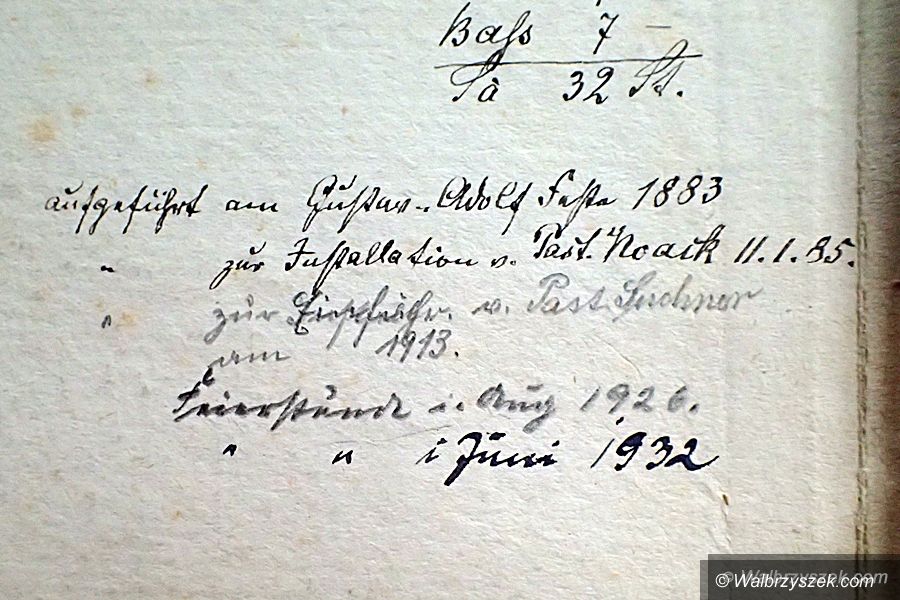 Bass 7 –
Sa 32 St.
aufgeführt am Gustav-Adolf Feste 1883
" zur Installation v. Past. Noack 11.1.85.
" zur Einführ. v. Past.
am 1913.
Feierstunde i. Aug 1926.
" " i Juni 1932
© Walbrzyszek.com